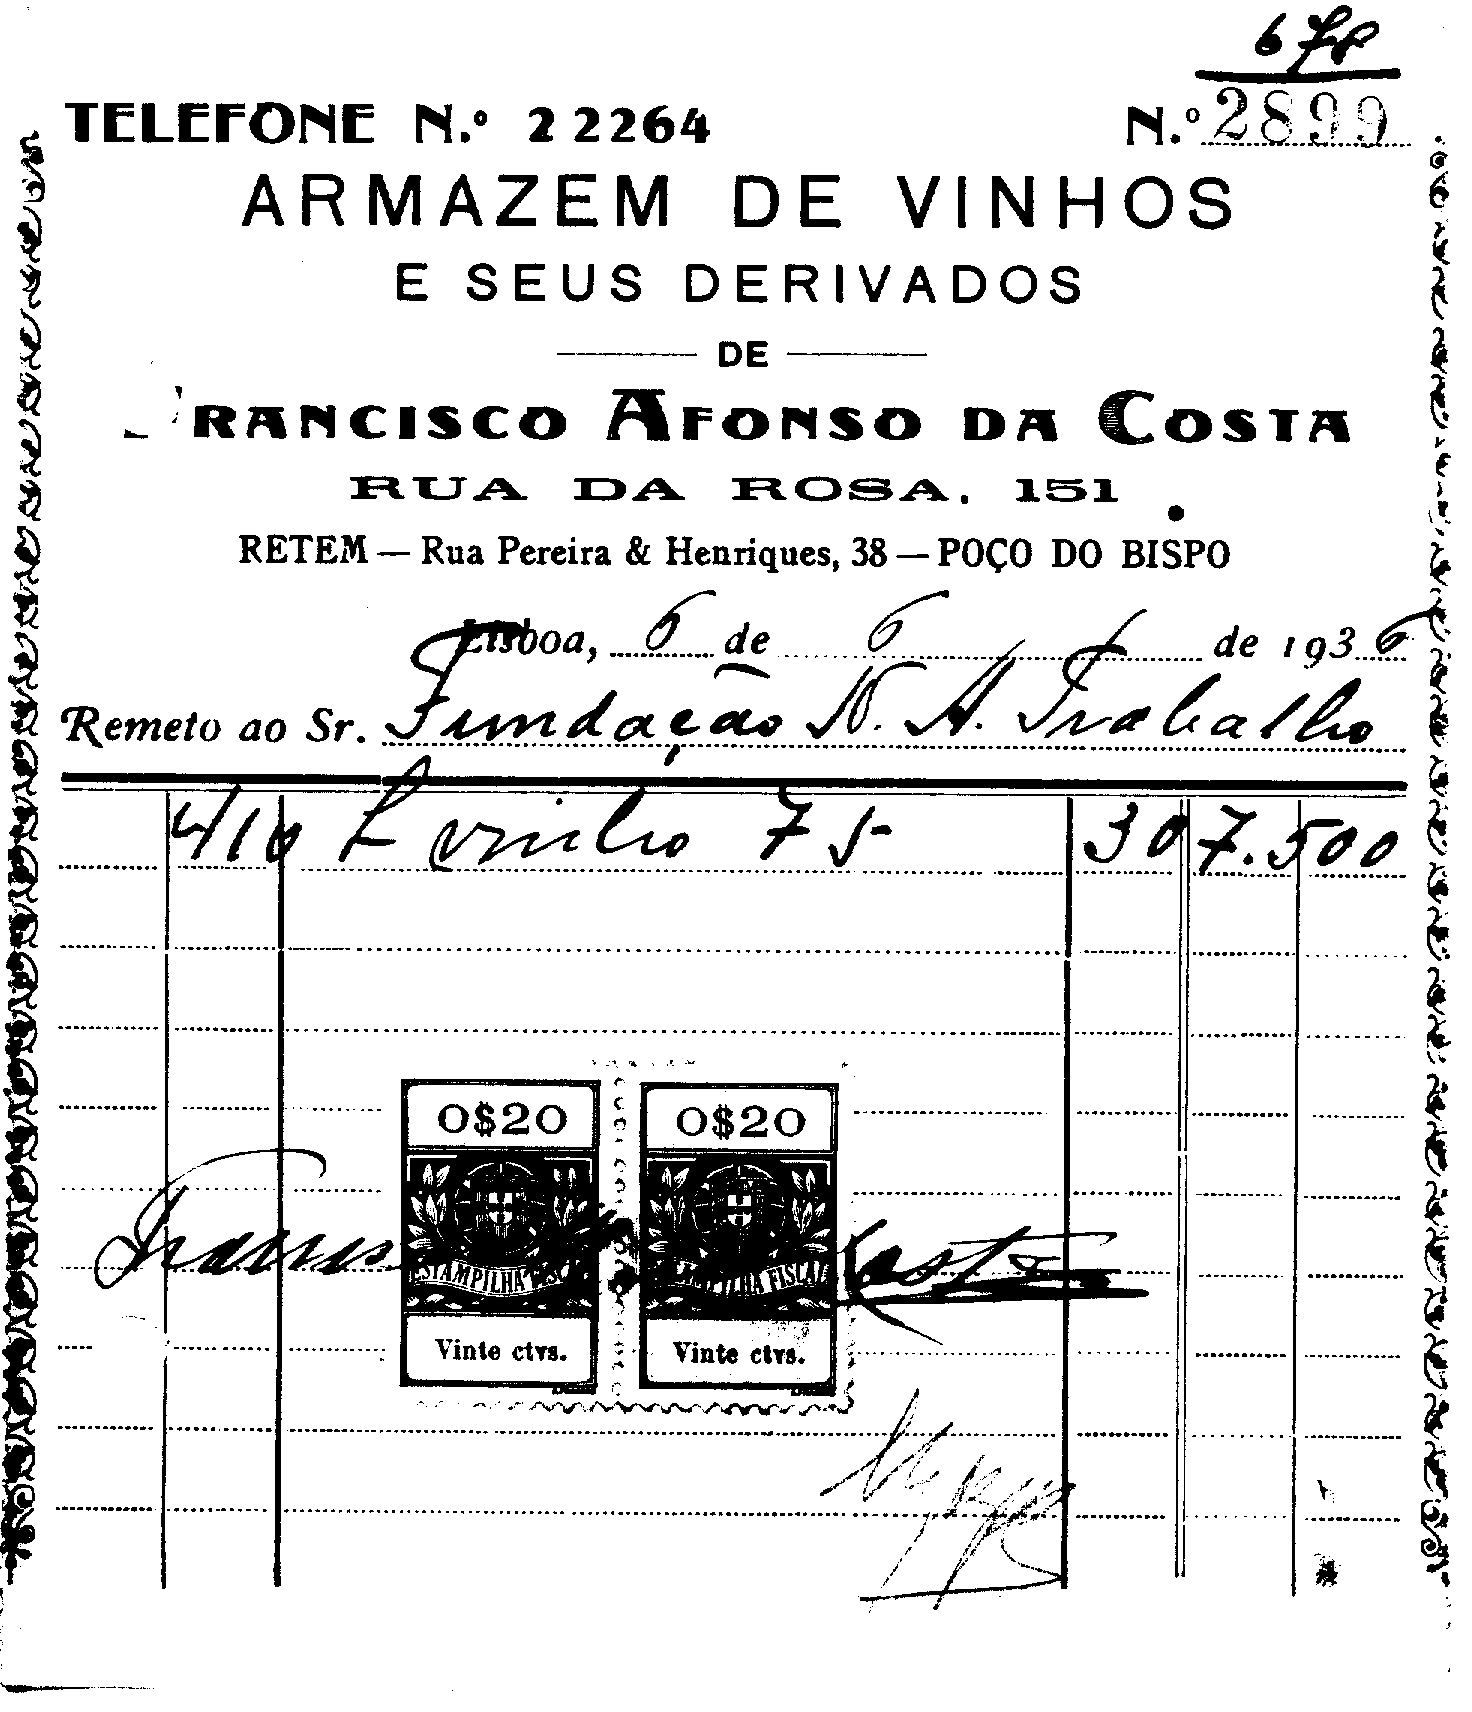 678
TELEFONE N.º 22264 N.º 2899
ARMAZEM DE VINHOS
E SEUS DERIVADOS
DE
RANCISCO AFONSO DA COSTA
RUA DA ROSA, 151
RETEM — Rua Pereira & Henriques, 38 — POÇO DO BISPO
Lisboa, 6 de 6 de 1936
Remeto ao Sr. Fundação N. A. Trabalho
410 L vinho 75 307.500
0$20 0$20
ESTAMPILHA FISCAL ESTAMPILHA FISCAL
Francisco Costa
Vinte ctvs. Vinte ctvs.